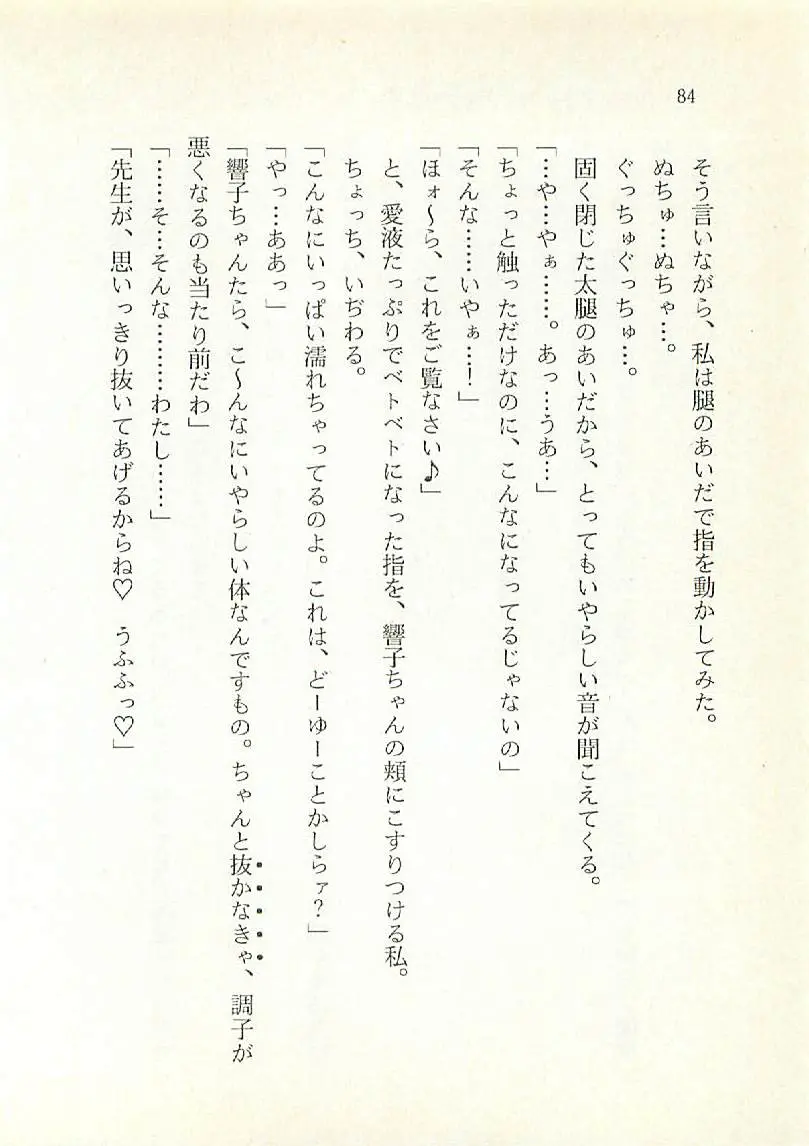 84
そう言いながら、私は腿のあいだで指を動かしてみた。
ぬちゅ…ぬちゃ…。
ぐっちゅぐっちゅ…。
固く閉じた太腿のあいだから、とってもいやらしい音が聞こえてくる。
「…や…やぁ……。あっ…うあ…」
「ちょっと触っただけなのに、こんなになってるじゃないの」
「そんな……いやぁ…！」
「ほォ〜ら、これをご覧なさい♪」
と、愛液たっぷりでベトベトになった指を、響子ちゃんの頬にこすりつける私。
ちょっち、いぢわる。
「こんなにいっぱい濡れちゃってるのよ。これは、どーゆーことかしらァ？」
「やっ…ああっ」
「響子ちゃんたら、こ〜んなにいやらしい体なんですもの。ちゃんと抜かなきゃ、調子が
悪くなるのも当たり前だわ」
「……そ…そんな………わたし……」
「先生が、思いっきり抜いてあげるからね♡　うふふっ♡」